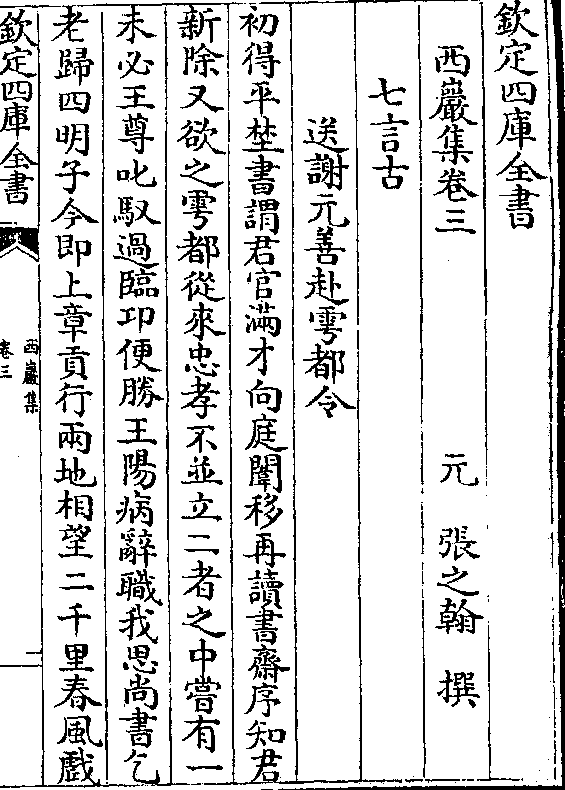 欽定四庫全書
西巖集卷三
元 張之翰 撰
七言古
送謝元善赴雩都令
初得平埜書謂君官滿才向庭闈移再讀書齋序知君
新除又欲之雩都從來忠孝不並立二者之中嘗有一
未必王尊叱馭過臨卭便勝王陽病辭職我思尚書乞
老歸四明子今即上章貢行兩地相望二千里春風戲
欽定四庫全書
西巖集
卷三
一